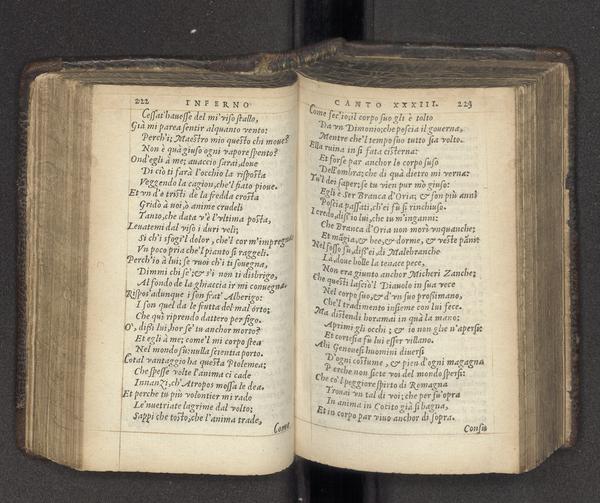 222 INFERNO
Cessat' hauesse del mi' viso stallo,
Già mi parea sentir alquanto vento:
Perch'i; Maestro mio questo chi moue?
Non è quà giuso ogni vapore spento?
Ond' egli à me; auaccio sarai, doue
Di ciò ti farà l'occhio la risposta
Veggendo la cagion, che'l fiato pioue.
Et vn d'e tristi de la fredda crosta
Gridò à noi, ò anime crudeli
Tanto, che data v'è l'vltima posta,
Leuatemi dal viso i duri veli;
Si ch'i sfogi'l dolor, che'l cor m'impregna
Vn poco pria che'l pianto si raggeli.
Perch'io à lui; se vuoi ch'i ti souegna,
Dimmi chi se'; & s'i non ti disbrigo,
Al fondo de la ghiaccia ir mi conuegna.
Rispos' adunque i son frat' Alberigo:
I son quel da le frutta del mal orto;
Che quì riprendo dattero per figo.
O', dissi lui, hor se' tu anchor morto?
Et egli à me; come'l mi corpo stea
Nel mondo su: nulla scientia porto.
Cotal vantaggio ha questa Ptolemea;
Che spesse volte l'anima ci cade
Innanzi, ch'Atropos mossa le dea.
Et perche tu più volontier mi rade
Le'nuetriate lagrime dal volto;
Sappi che tosto, che l'anima trade,
Come
CANTO XXXIII. 223
Come fec'io; il corpo suo gli è tolto
Da vn Dimonio; che poscia il gouerna,
Mentre che'l tempo suo tutto sia volto.
Ella ruina in si fata cisterna:
Et forse par anchor lo corpo suso
Dell'ombra; che di quà dietro mi verna:
Tu'l dei saper; se tu vien pur mò giuso:
Egli è ser Branca d'Oria; & son più anni
Poscia passati, ch'ei fù si rinchiuso.
I credo, diss'io lui, che tu m'inganni:
Che Branca d'Oria non morì vnquanche;
Et mágia, & bee, & dorme, & veste páni
Nel fosso su, diss'ei, di Malebranche
Là, doue bolle la tenace pece,
Non era giunto anchor Micheri Zanche;
Che questi lasciò'l Diauolo in sua vece
Nel corpo suo, & d'vn suo prossimano,
Che'l tradimento insieme con lui fece.
Ma distendi horamai in quà la mano:
Aprimi gli occhi; & io non glie n'apersi:
Et cortesia fù lui esser villano.
Ahi Genouesi huomini diuersi
D'ogni costume, & pien d'ogni magagna
Perche non siete voi del mondo spersi:
Che co'l peggiore spirto di Romagna
Trouai vn tal di voi; che per su'opra
In anima in Cocito già si bagna,
Et in corpo par viuo anchor di sopra.
Consio